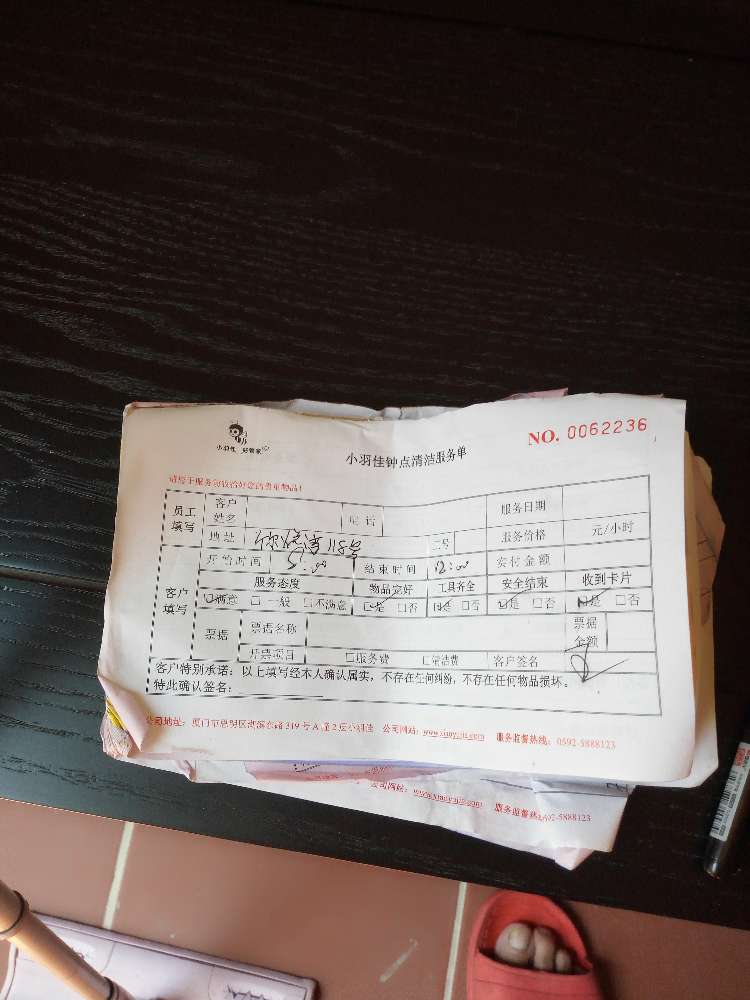 小羽佳 好管家
小羽佳钟点清洁服务单
NO. 0062236
员工填写
客户姓名
电话
服务日期
地址
服务价格 元/小时
客户填写
开始时间 :00 结束时间 12:00 实付金额
服务态度 物品完好 工具齐全 安全结束 收到卡片
☑满意 □一般 □不满意 ☑是 □否 ☑是 □否 ☑是 □否 ☑是 □否
票据 票据名称 票据金额
开票项目 □服务费 □清洁费 客户签名
客户特别承诺：以上填写经本人确认属实，不存在任何纠纷，不存在任何物品损坏。
特此确认签名：
公司地址：厦门市思明区湖滨东路319号A座2层小羽佳 公司网站：www.xiaoyujia.com 服务监督热线：0592-5888123
公司网站：www.xiaoyujia.com 服务监督热线：0592-5888123